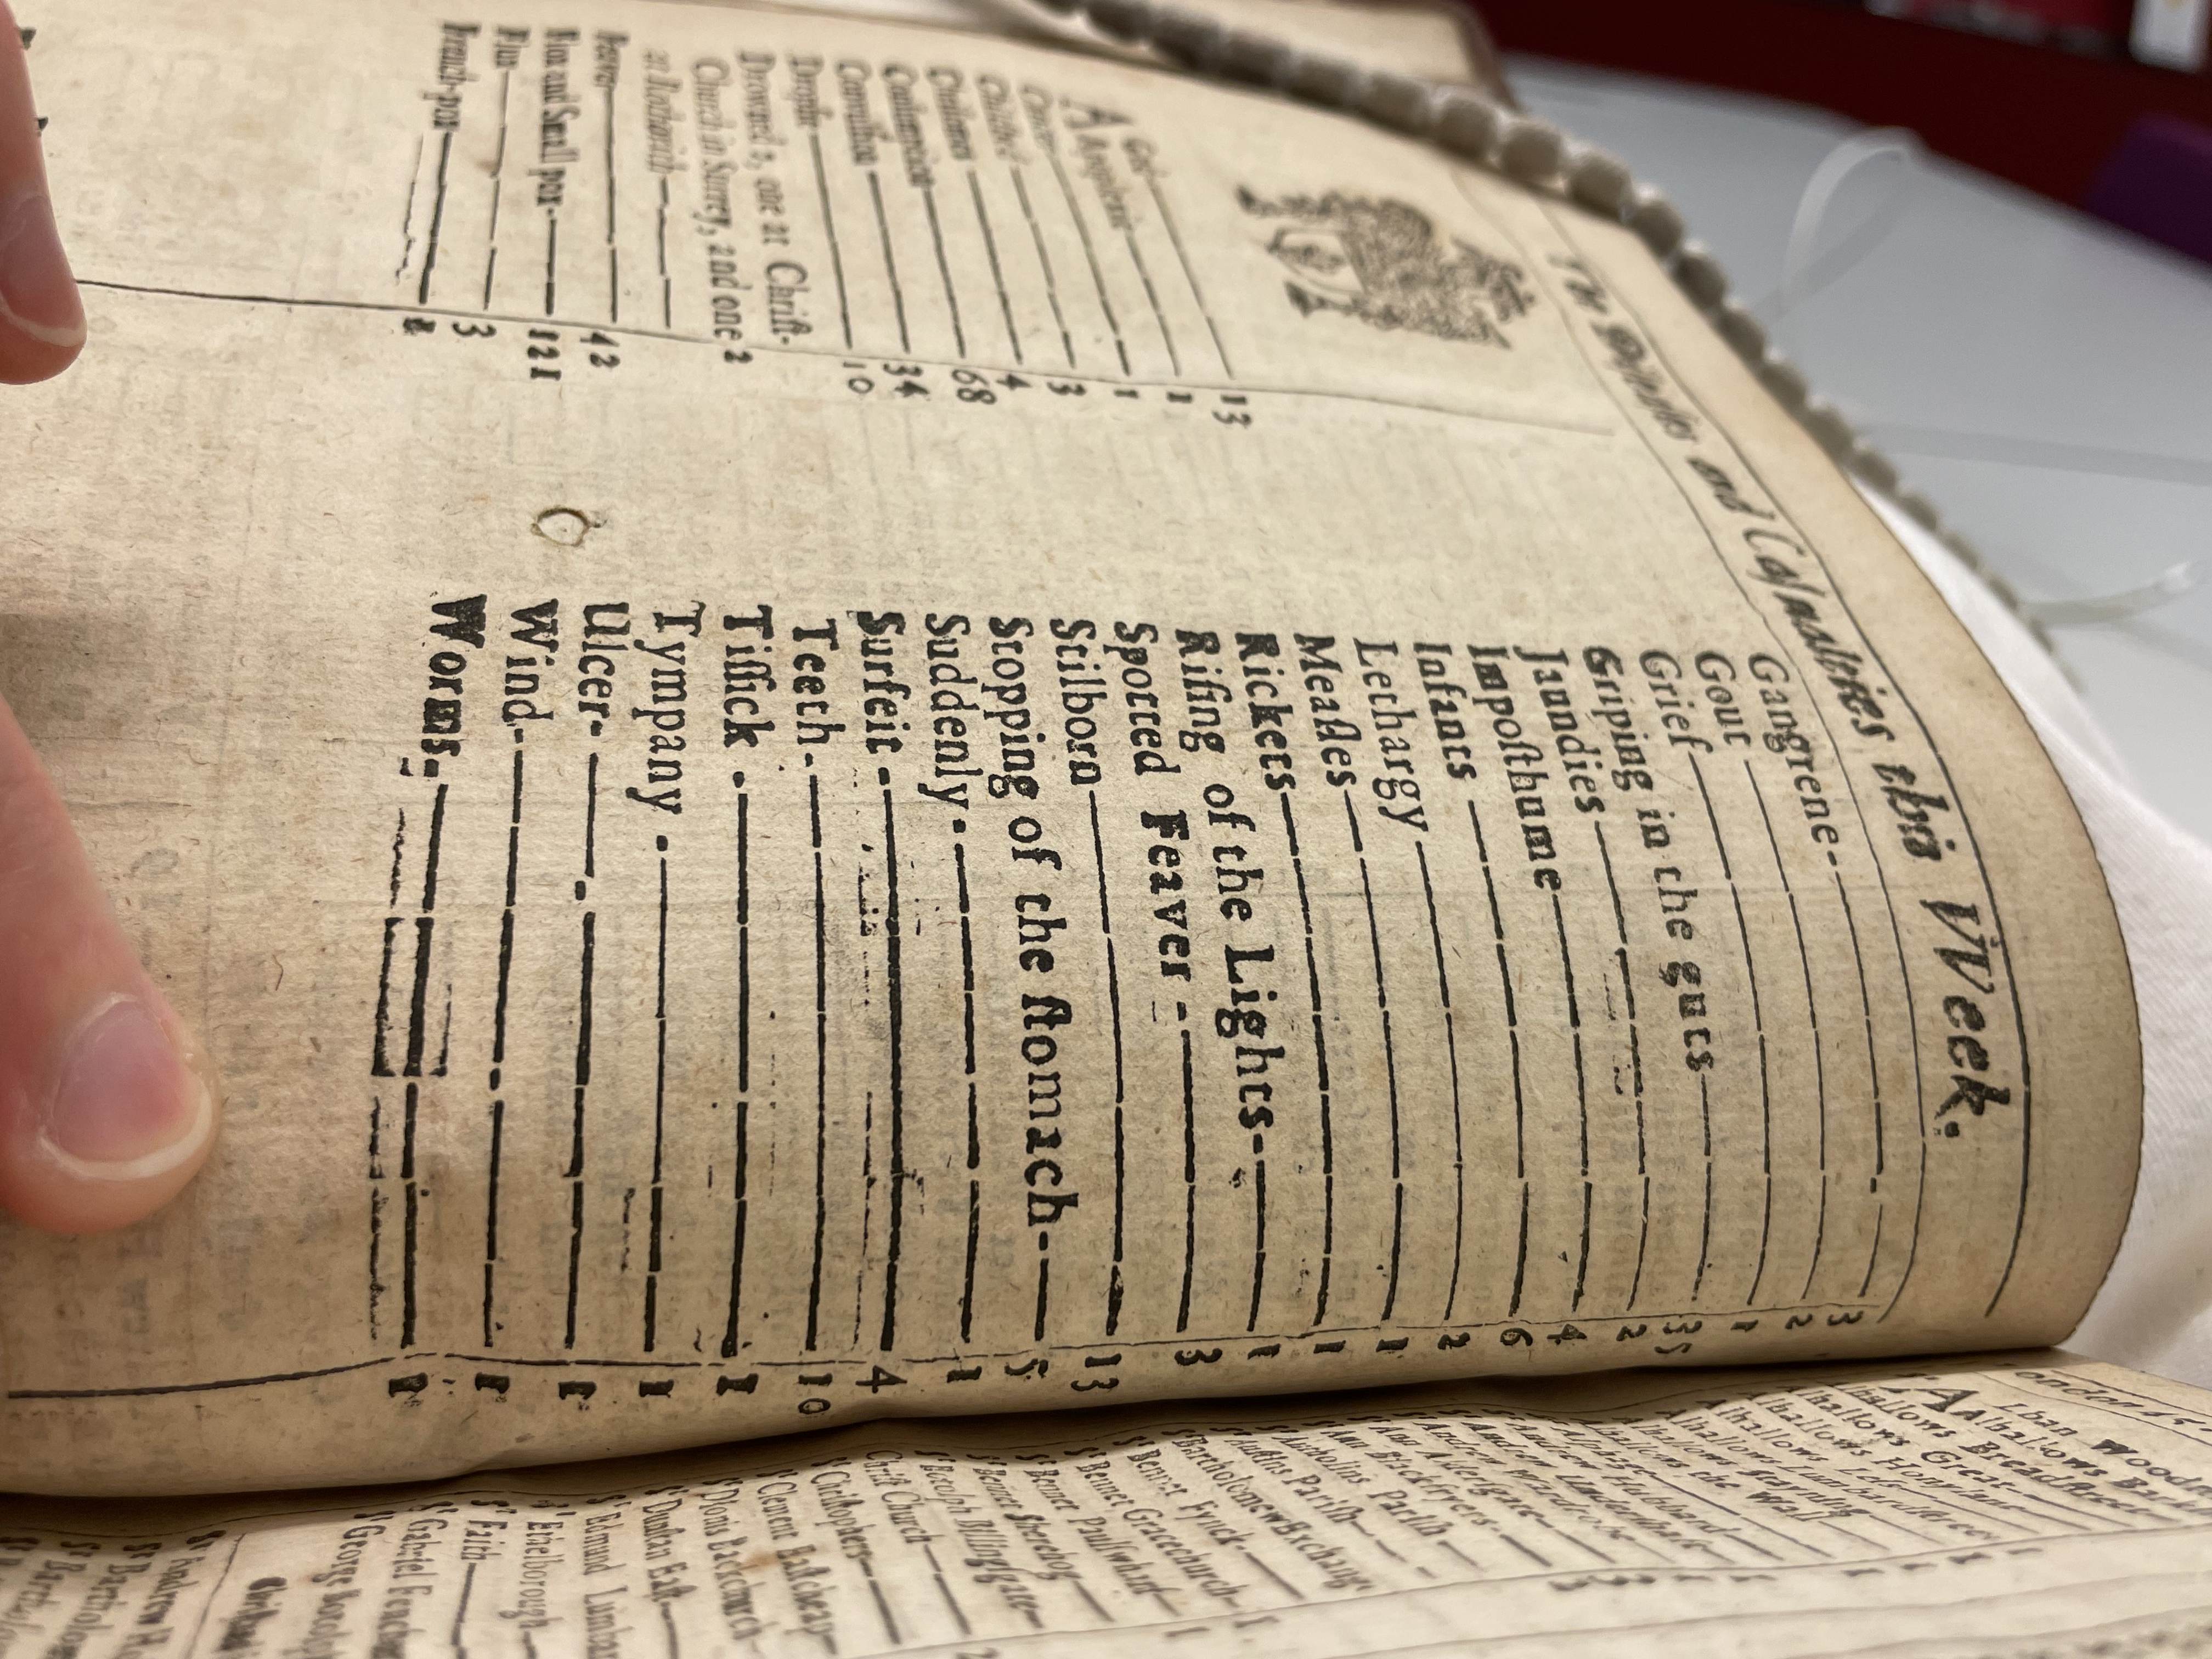 The Diseases and Casualties this Week.
Aged 13
Apoplexie 1
Cancer 1
Childbed 3
Chrisomes 4
Consumption 68
Convulsion 34
Dropsie 10
Drowned 2, one at Christ-
Church in Surrey, and one 2
at Redriff
Feaver 42
Flox and Small pox 121
Flux 3
French-pox
Gangrene 3
Gout 2
Grief 1
Griping in the guts 35
Jaundies 2
Imposthume 4
Infants 6
Lethargy 2
Measles 1
Rickets 1
Rising of the Lights 1
Spotted Feaver 3
Stilborn 13
Stopping of the stomach 5
Suddenly 1
Surfeit 4
Teeth 10
Tissick 1
Tympany 1
Ulcer 1
Wind 1
Worms 1
Alhallows Breadstreet
Alhallows Great
Alhallows Honylane
Alhallows Lesse
Alhallows Lumbardstreet
Alhallows Stayning
Alhallows the Wall
St Alphage
St Andrew Hubbard
St Andrew Undershaft
St Andrew Wardrobe
St Ann Aldersgate
St Ann Blackfryers
St Antholins Parish
St Austins Parish
St Bartholomew Exchange
St Bennet Fynck
St Bennet Gracechurch
St Bennet Paulswharf
St Bennet Sherehog
St Botolph Billingsgate
Christ Church
St Christophers
St Clement Eastcheap
St Dionis Backchurch
St Dunstan East
St Edmund Lumbard
St Ethelborough
St Faith
St Gabriel Fenchurch
St George Botolph